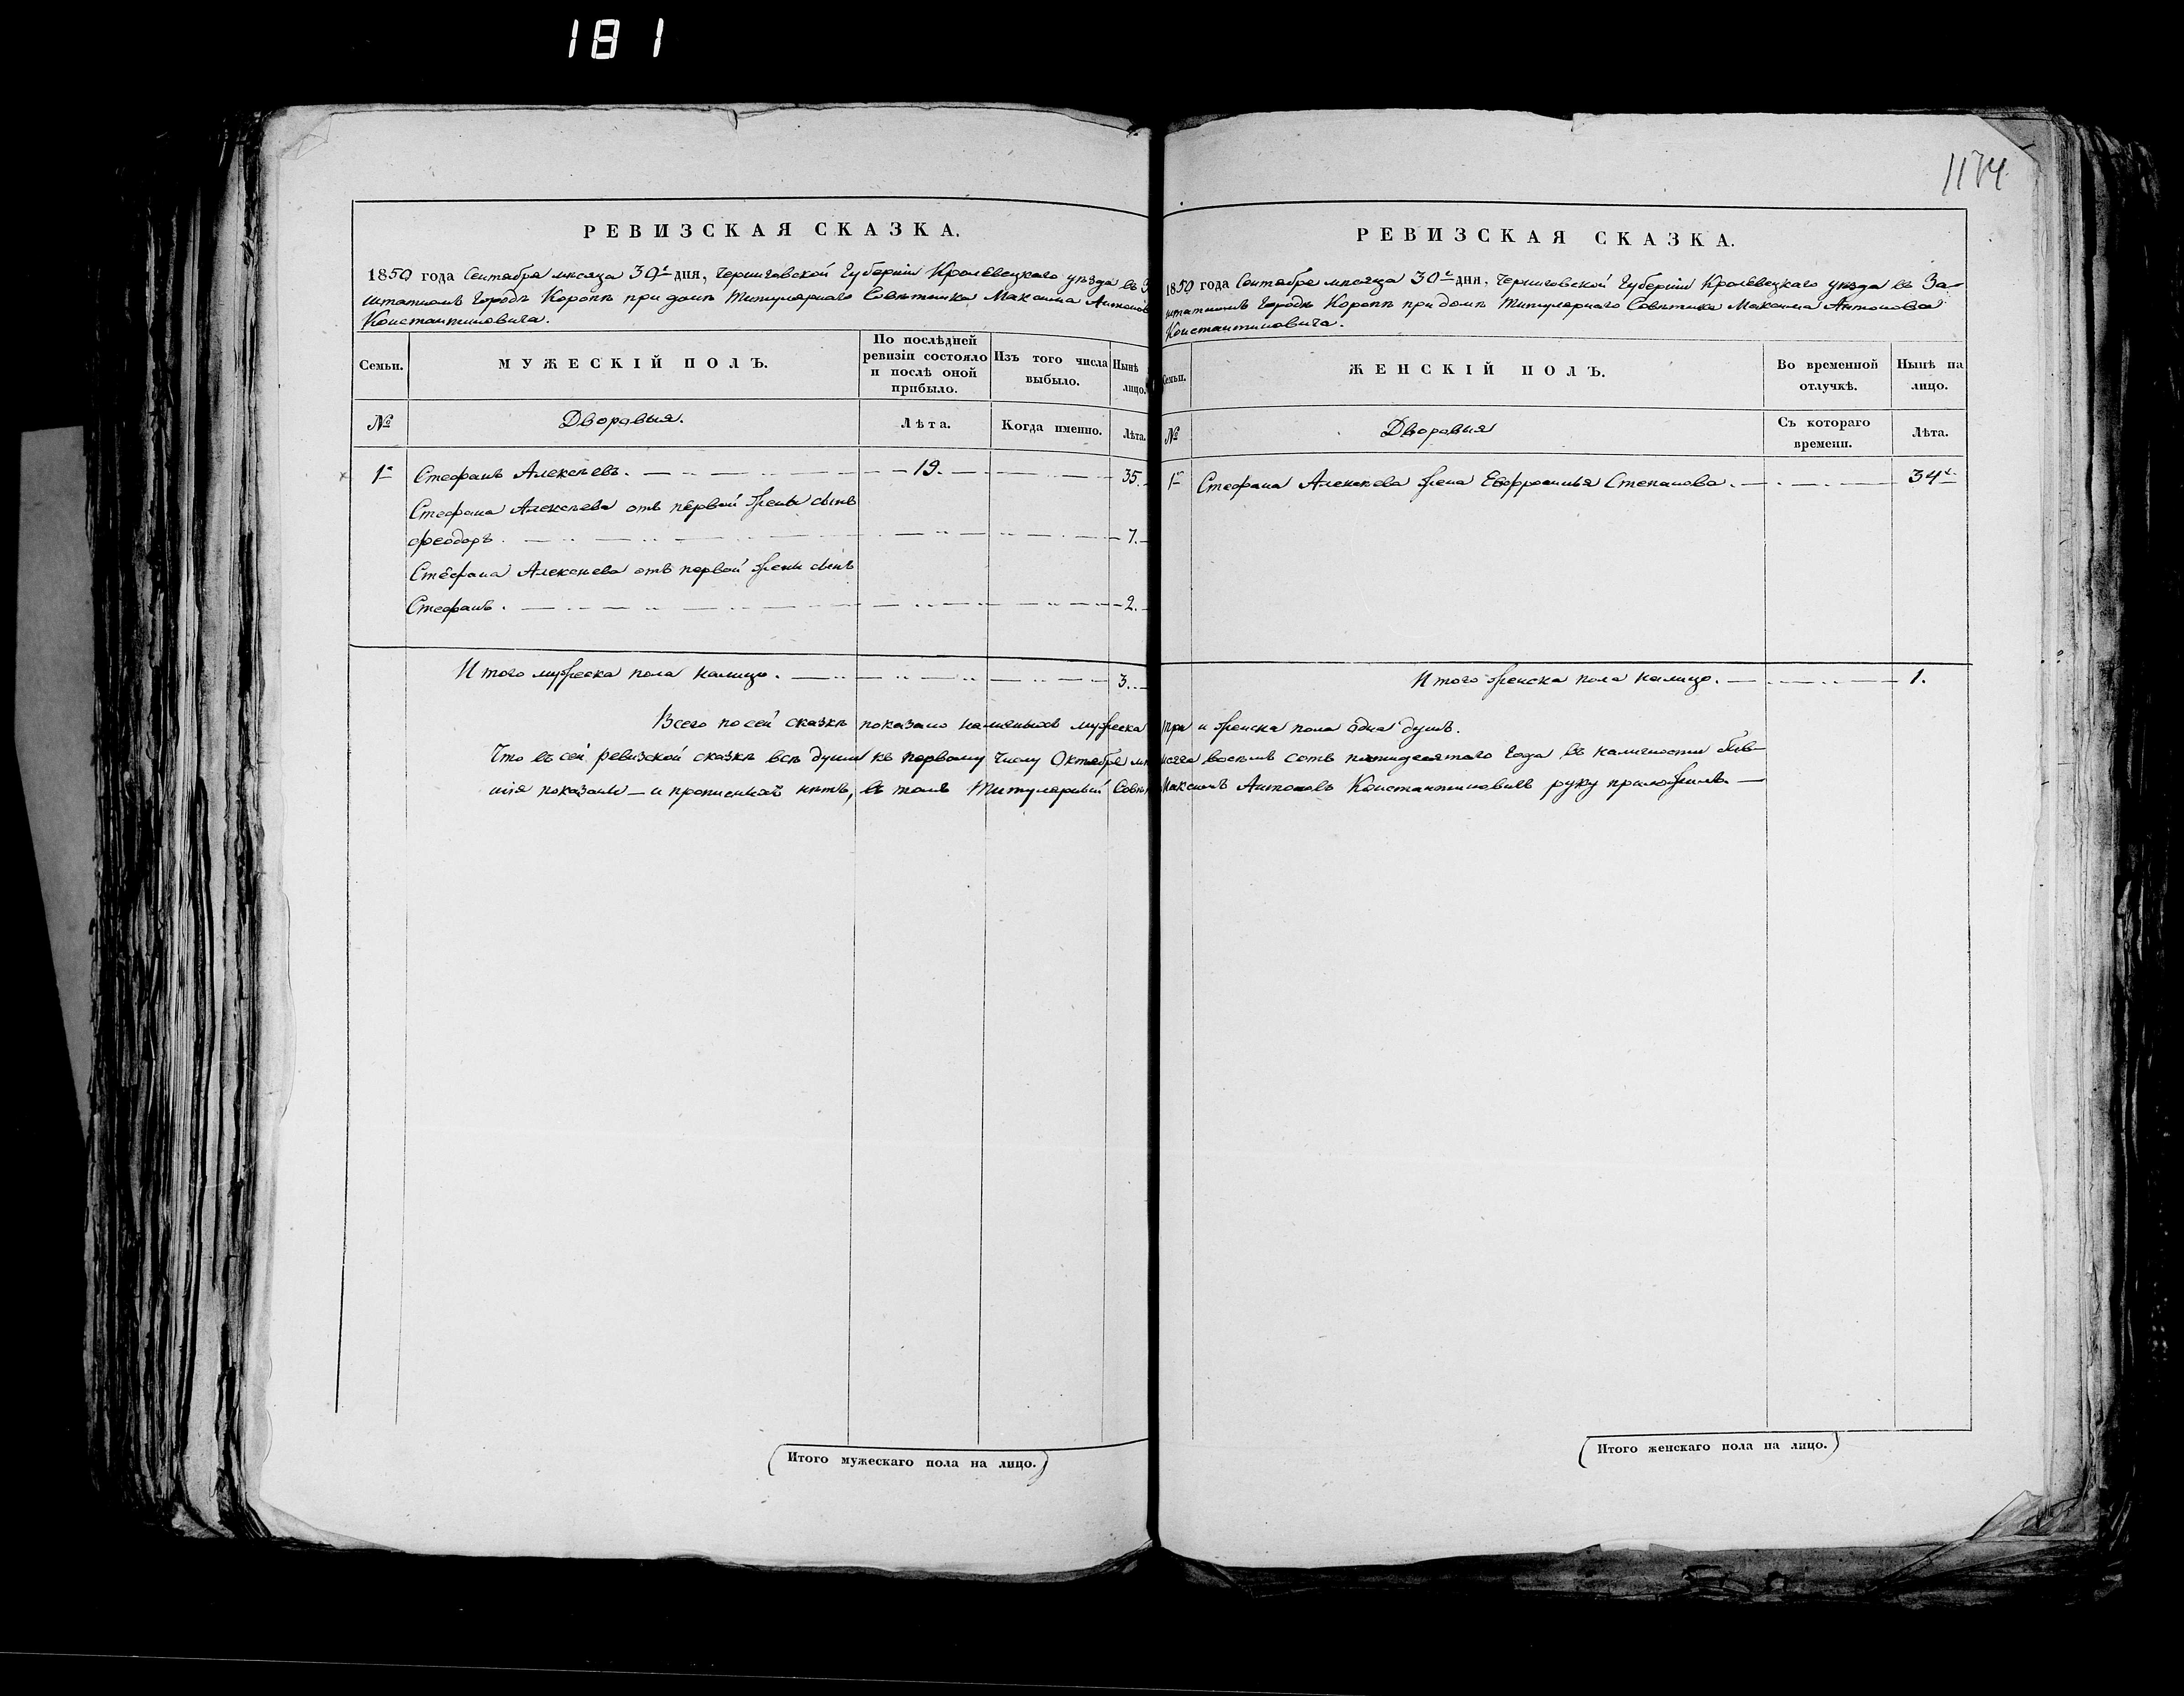 181
1174
РЕВИЗСКАЯ СКАЗКА.
1850 года Сентября мѣсяца 30го дня, Черниговской Губерніи Кролѣвецкаго уѣзда въ З
штатномъ Городѣ Коропѣ при домѣ Титулярнаго Совѣтника Максима Антонов
Константиновича.
Семьи.
МУЖЕСКІЙ ПОЛЪ.
По послѣдней ревизіи состояло и послѣ оной прибыло.
Изъ того числа выбыло.
Нынѣ лицо.
№
Дворовыя.
Лѣта.
Когда именно.
Лѣта.
1й Стефанъ Алексѣевъ. 19. 35.
Стефана Алексѣева отъ первой жены сынъ
Ѳеодоръ. 7.
Стефана Алексѣева отъ первой жены сынъ
Стефанъ. 2.
Итого мужеска пола налицо. 3.
РЕВИЗСКАЯ СКАЗКА.
1850 года Сентября мѣсяца 30го дня, Черниговской Губерніи Кролѣвецкаго уѣзда въ За-
штатномъ Городѣ Коропѣ при домѣ Титулярнаго Совѣтника Максима Антонова
Константиновича.
Семьи.
ЖЕНСКІЙ ПОЛЪ.
Во временной отлучкѣ.
Нынѣ на лицо.
№
Дворовыя
Съ котораго времени.
Лѣта.
1й Стефана Алексѣева жена Евфросинья Степанова. 34.
Итого женска пола налицо. 1.
Всего по сей сказкѣ показано наличныхъ мужеска три и женска пола одна душъ.
Что въ сей ревизской сказкѣ всѣ души къ первому числу Октября восемь сотъ пятидесятаго года въ наличности быв-
шія показаны — и прописныхъ нѣтъ, въ томъ Титулярный Совѣт Максимъ Антоновъ Константиновичъ руку приложилъ. —
Итого мужескаго пола на лицо.
Итого женскаго пола на лицо.